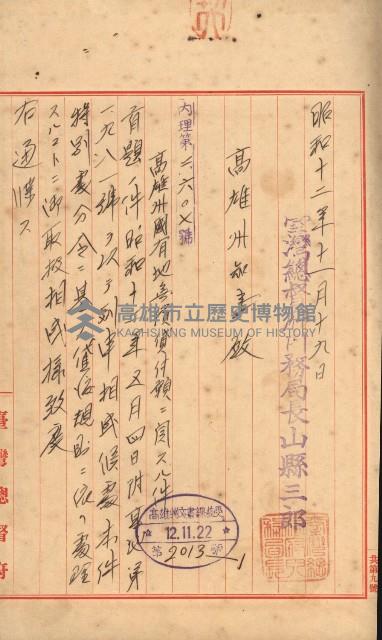 昭和十二年十一月十九日
臺灣總督府內務局長山縣三郎
高雄州知事殿
內理第二六〇七號
高雄州國有地無償貸付願ニ関スル件
首題ノ件昭和十二年五月四日附
一九八一號ヲ以テ副申相成候處本件
特別處分令ニ基ク貸付規則ニ依リ處理
スルコトニ御取扱相成様致度
右通牒ス
高雄州文書課接受
12.11.22
第2013號
臺灣總督府
共第九號
高雄市立歷史博物館
KAOHSIUNG MUSEUM OF HISTORY